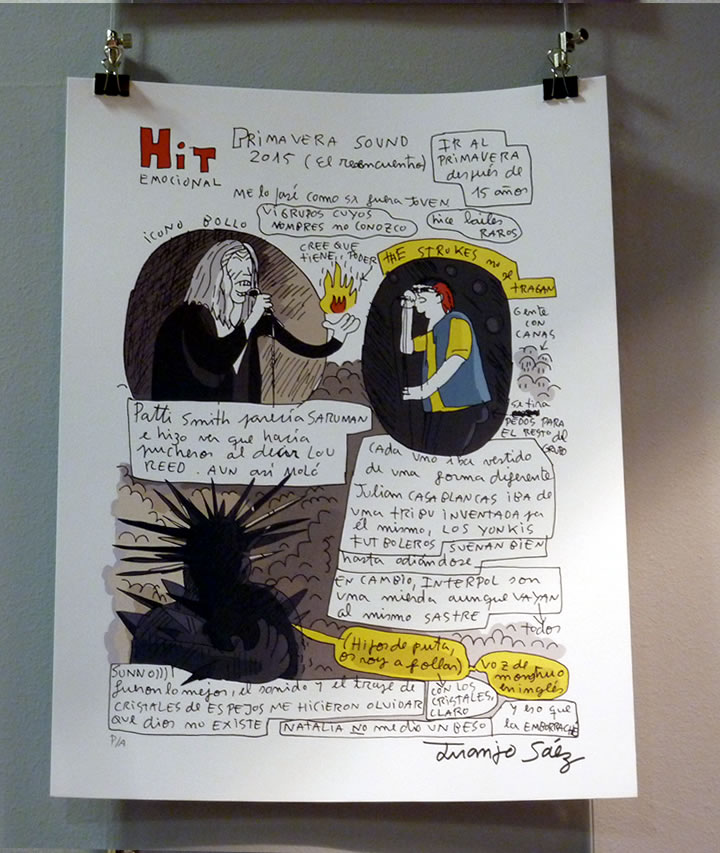 HiT
EMOCIONAL
PRIMAVERA SOUND
2015 (El reencuentro)
IR AL
PRIMAVERA
después de
15 años
ME lo pasé como si fuera joven
Vi GRUPOS CUYOS
NOMBRES NO CONOZCO
hice bailes
RAROS
iCONO BOLLO
CREE QUE
TIENE PODER
THE STROKES no
se
TRAGAN
Gente
CON
CANAS
se tira
PEDOS PARA
EL RESTO del
GRUPO
Patti Smith parecía SARUMAN
e hizo ver que hacía
pucheros al decir LOU
REED. AUN así MOLÓ
CADA UNO iba vestido
de una forma diferente
Julian CASABLANCAS IBA de
UNA TRIBU INVENTADA por
él mismo, LOS YONKIS
FUTBOLEROS
SUENAN BIEN
hasta odiándose
EN CAMBIO, INTERPOL son
una mierda aunque VAYAN
al mismo SASTRE
todos
(Hijos de puta,
os voy a follar)
VOZ de
monstruo
en inglés
CON LOS
CRISTALES,
CLARO
SUNNO)))
fueron lo mejor, el sonido y el traje de
CRISTALES de ESPEJOS ME HICIERON OLVIDAR
QUE dios no EXISTE
NATALIA NO me dio UN BESO
Y eso que
la EMBORRACHÉ
P/A
Juanjo Sáez